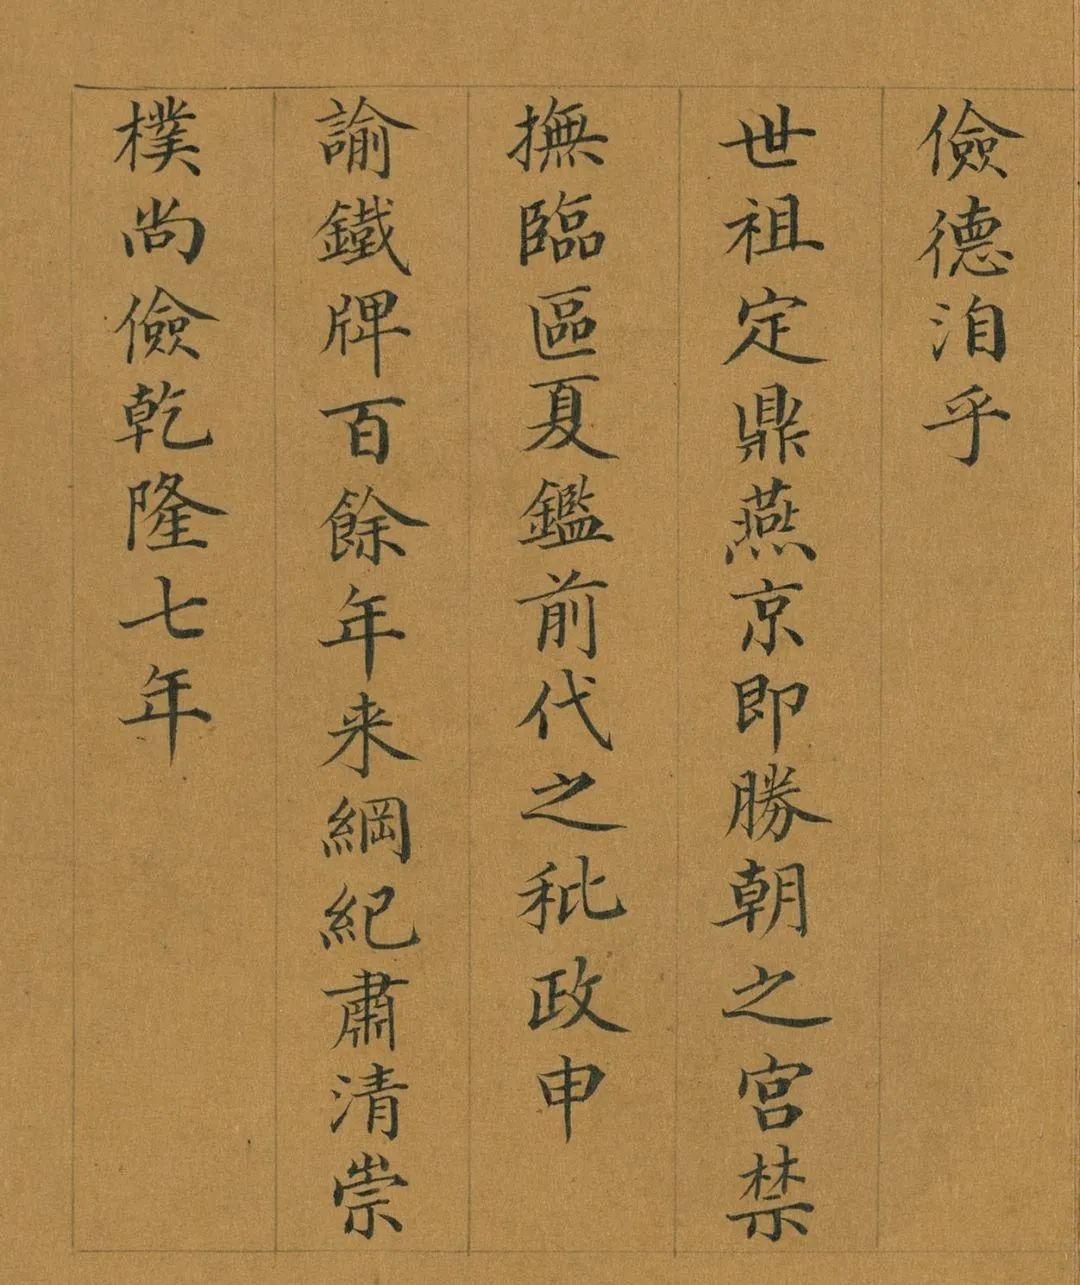 儉德洎乎
世祖定鼎燕京即勝朝之宮禁
撫臨區夏鑑前代之秕政申
諭鐵牌百餘年来綱紀肅清崇
樸尚儉乾隆七年